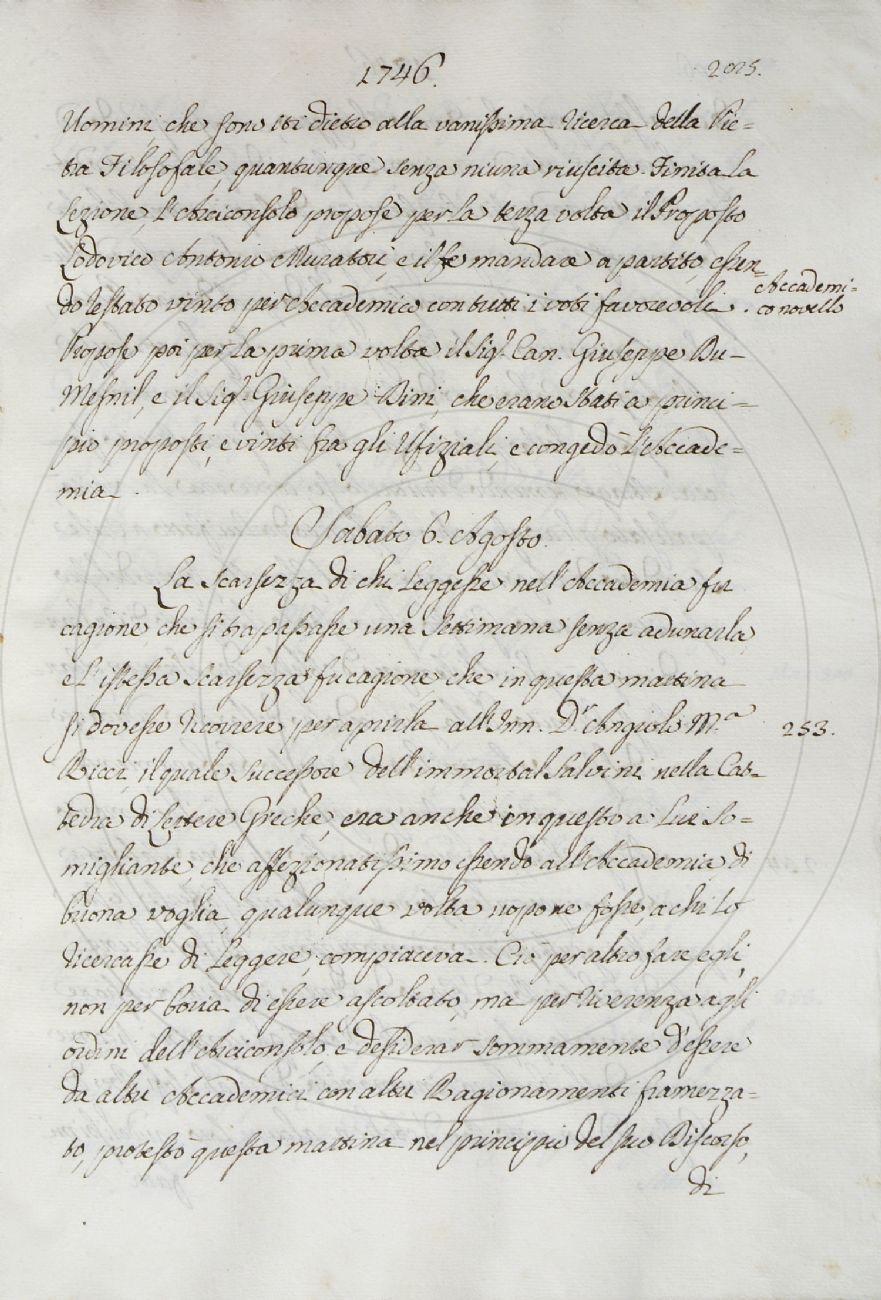 1746.
2025.
Uomini, che sono iti dietro alla vanissima ricerca della Pie=
tra Filosofale, quantunque senza niuna riuscita. Finita la
Lezione, l'Arciconsolo propose per la terza volta il Proposto
Lodovico Antonio Muratori, e il fe mandare a partito, essen=
do restato vinto per Accademico con tutti i voti favorevoli.
Accademi=
co novello
Propose poi per la prima volta il Sigr. Can. Giuseppe Du=
Mesnil, e il Sigr. Giuseppe Bini, che erano stati a princi=
pio proposti, e vinti fra gli Ufiziali, e congedò l'Accade=
mia.
Sabato 6. Agosto.
La scarsezza di chi leggesse nell'Accademia fu
cagione, che si trapassasse una Settimana senza adunarla,
e l'istessa scarsezza fu cagione, che in questa mattina
si dovesse ricorrere per aprirla all'Inn. Dr. Angiolo M.a
253.
Ricci, il quale successore dell'immortal Salvini nella Cat=
tedra di Lettere Greche, era anche in questo a Lui so=
migliante, che affezionatissimo essendo all'Accademia di
buona voglia, qualunque volta uopo ne fosse, a chi lo
ricercasse di leggere, compiaceva. Ciò per altro fare egli,
non per boria di essere ascoltato, ma per riverenza agli
ordini dell'Arciconsolo, e desiderar sommamente d'essere
da altri Accademici con altri Ragionamenti framezza=
to, protestò questa mattina nel principio del suo Discorso,
di